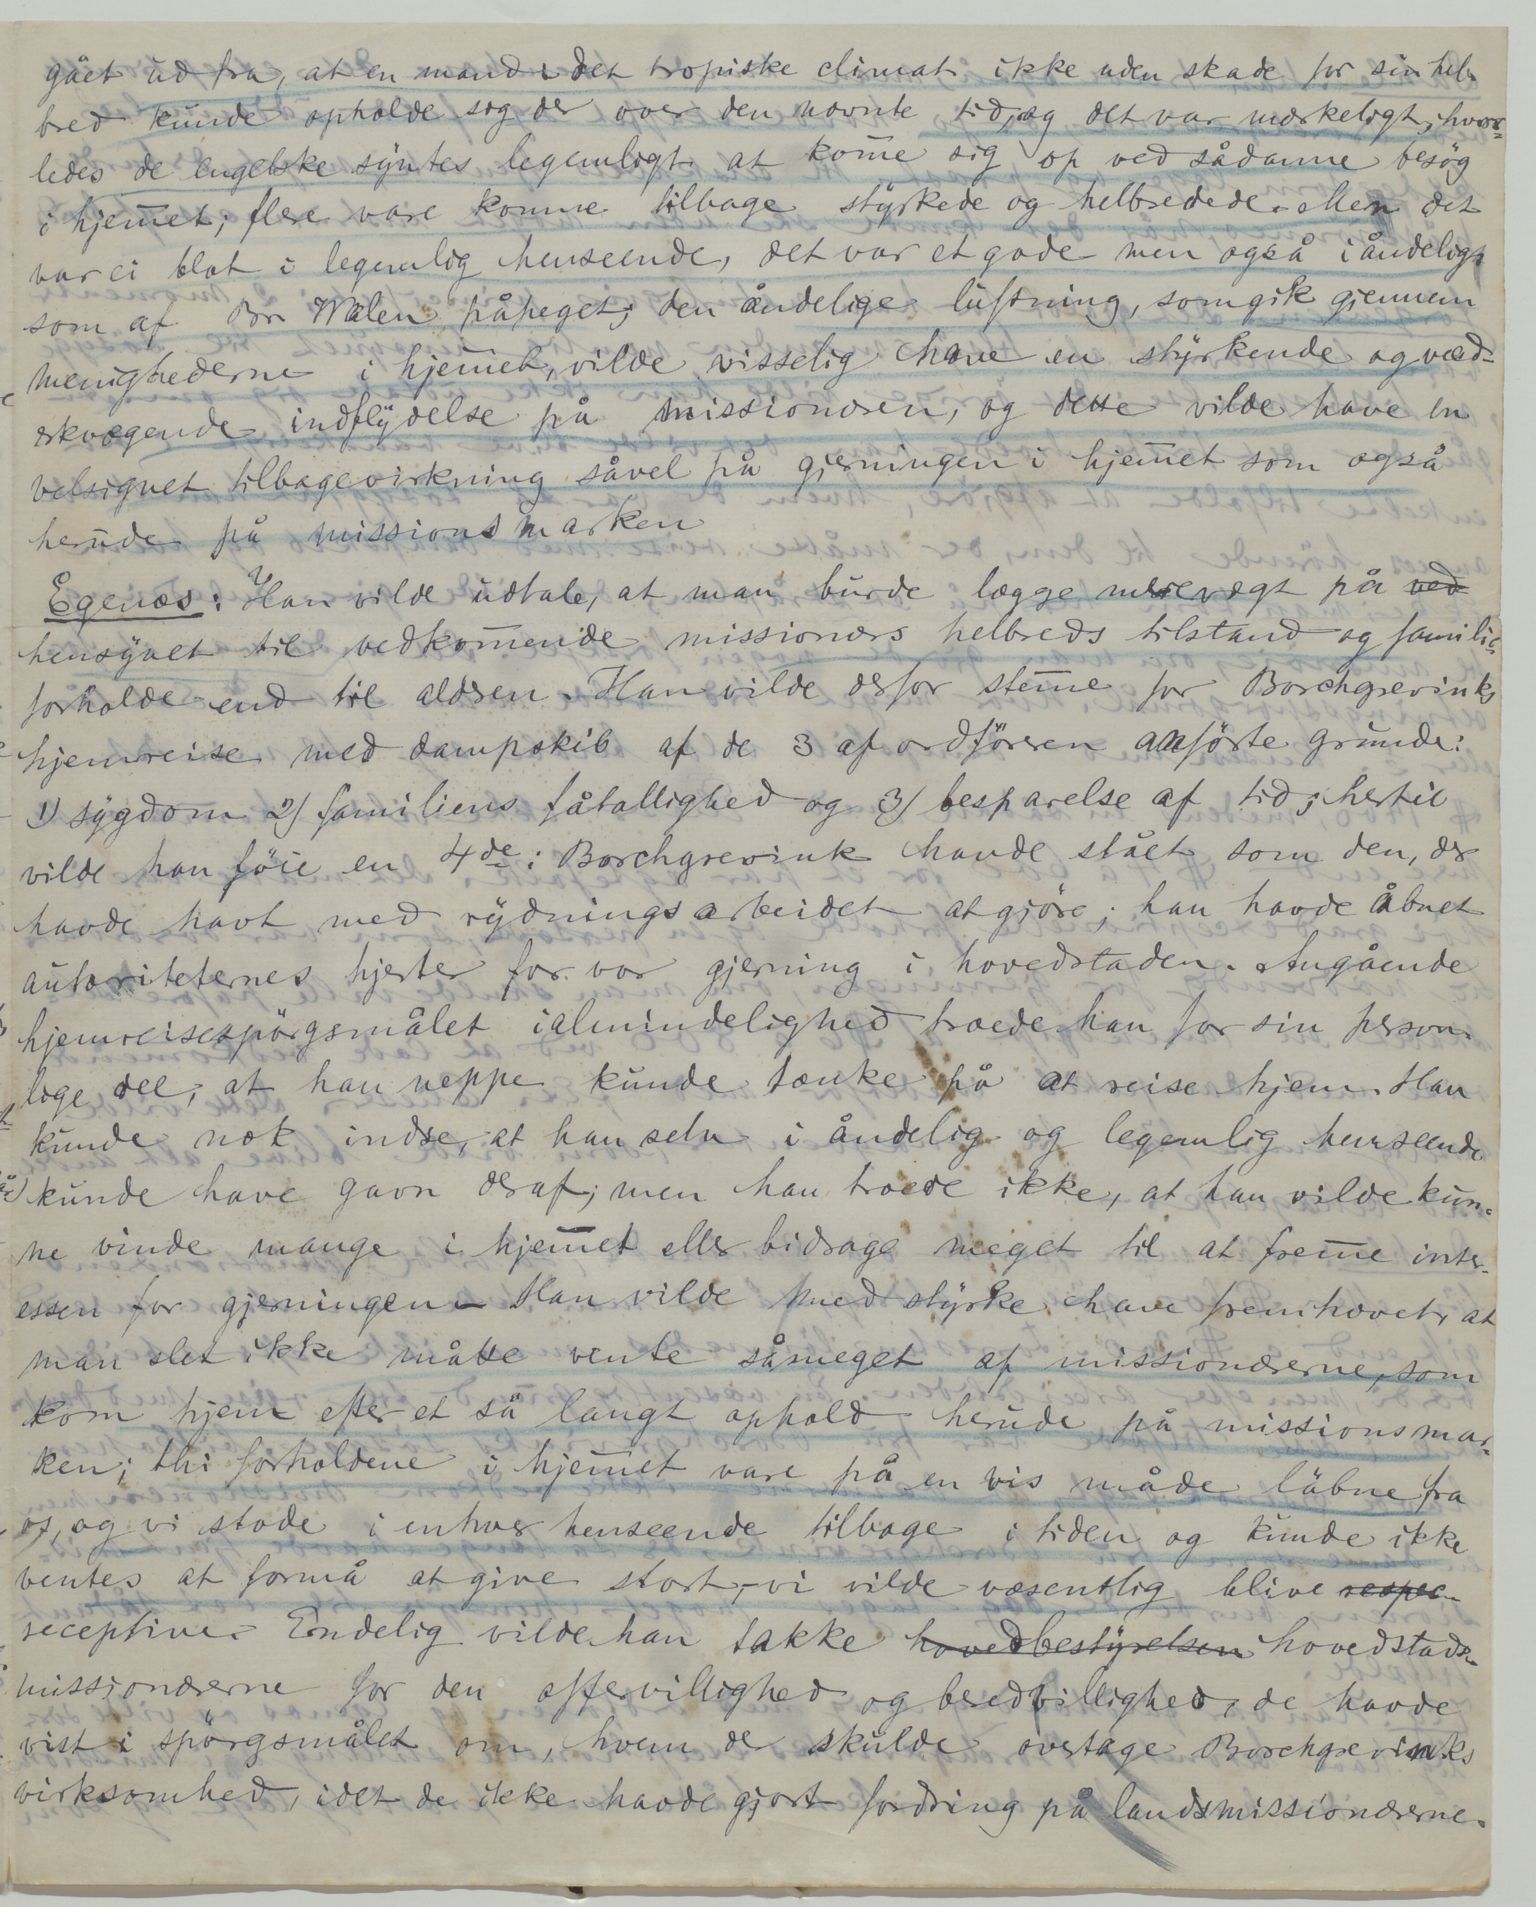 gået ud fra, at en mand i det tropiske climat ikke uden skade for sin hel-
bred kunde opholde sig der over den nævnte tid, og det var mærkeligt, hvor-
ledes de engelske syntes legemligt at kom̅e sig op ved sådanne besög
i hjem̅et; flere vare komne tilbage styrkede og helbredede. Men det
var ei blot i legemlig henseende, det var et gode men også i åndelig,
som af Br. Walen påpeget; den åndelige luftning, som gik gjennem
menighederne i hjem̅et, vilde visselig have en styrkende og ved-
erkvægende indflydelse på missionæren, og dette vilde have en
velsignet tilbagevirkning såvel på gjerningen i hjem̅et som også
herude på missionsmarken
Egenæs: Han vilde udtale, at man burde lægge mere vægt på ved
hensynet til vedkom̅ende missionærs helbreds tilstand og familie-
forholde end til alderen. Han vilde derfor stem̅e for Borchgrevinks
hjemreise med dampskib af de 3 af ordföreren anförte grunde:
1) sygdom 2) familiens fåtallighed og 3) besparelse af tid; hertil
vilde han föie en 4de: Borchgrevink havde stået som den, der
havde havt med rydningsarbeidet at gjöre; han havde åbnet
autoriteternes hjerter for vor gjerning i hovedstaden. Angående
hjemreisespörgsmålet ialmindelighed troede han for sin person-
lige del, at han neppe kunde tænke på at reise hjem. Han
kunde nok indse, at han selv i åndelig og legemlig henseende
kunde have gavn deraf; men han troede ikke, at han vilde kun-
ne vinde mange i hjem̅et eller bidrage meget til at frem̅e inter-
essen for gjerningen. Han vilde med styrke have fremhævet, at
man slet ikke måtte vente såmeget af missionærerne, som
kom hjem efter et så langt ophold herude på missionsmar-
ken; thi forholdene i hjem̅et vare på en vis måde löbne fra
os, og vi stode i enhver henseende tilbage i tiden og kunde ikke
ventes at formå at give stort, vi vilde væsentlig blive respec-
receptive. Endelig vilde han takke hovedbestyrelsen hovedstads-
missionærerne for den offervillighed og beredvillighed, de havde
vist i spörgsmålet om, hvem der skulde overtage Borchgrevinks
virksomhed, idet de ikke havde gjort fordring på landsmissionærerne.